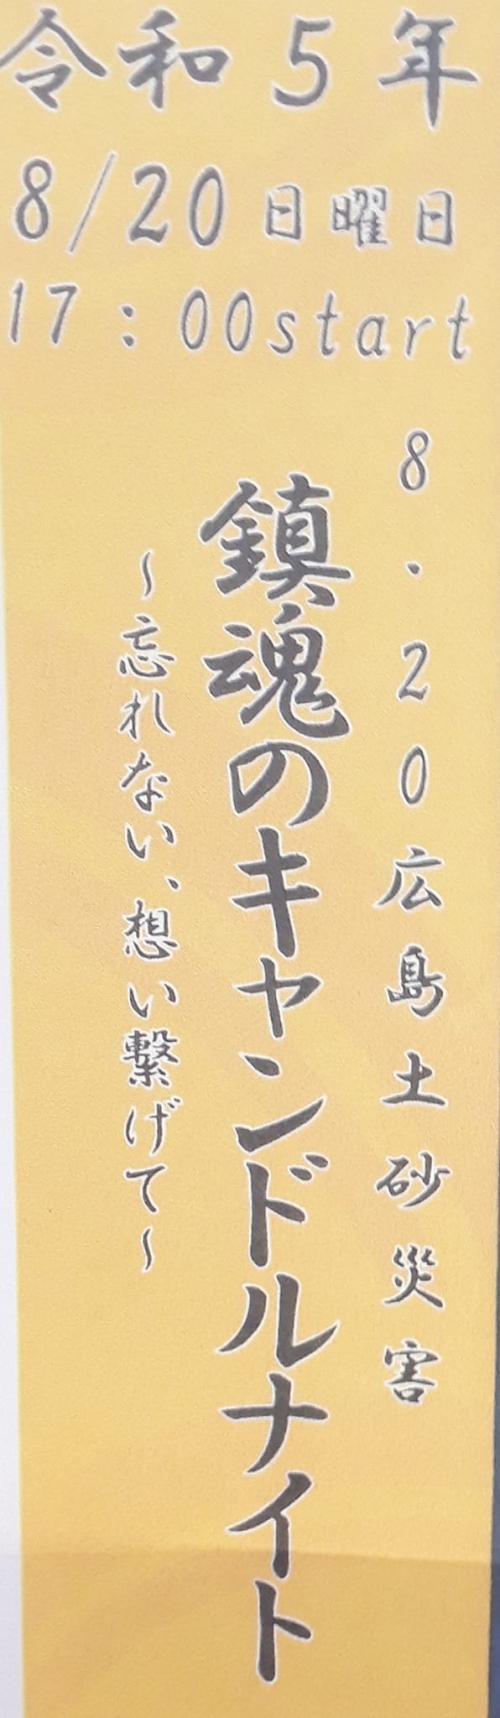 令和5年
8/20日曜日
17:00start
8・20広島土砂災害
鎮魂のキャンドルナイト
~忘れない、想い繋げて~